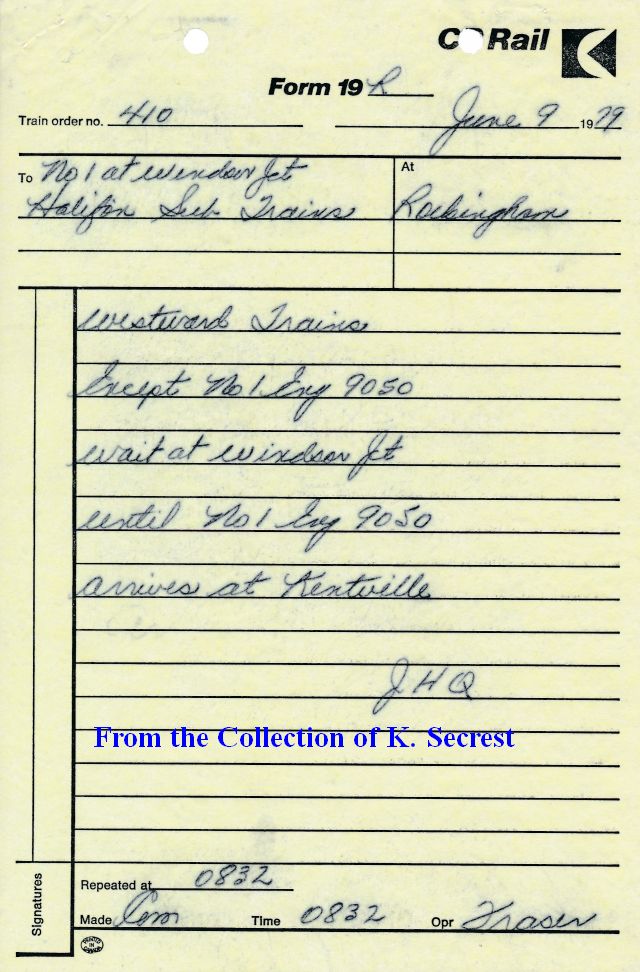 CP Rail
Form 19 R
Train order no. 410 June 9 1979
To No 1 at Windsor Jct At
Halifax Sub Trains Rockingham
Westward Trains
Except No 1 Eng 9050
wait at Windsor Jct
until No 1 Eng 9050
arrives at Kentville
J H Q
From the Collection of K. Secrest
Signatures
Repeated at 0832
Made Com Time 0832 Opr Fraser
PRINTED IN CANADA